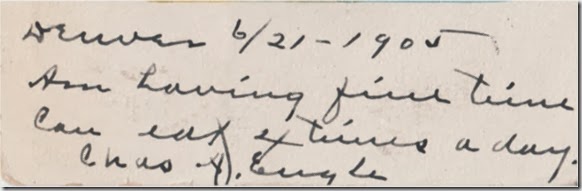 Denver 6/21-1905
Am having fine time
Can eat x times a day.
Chas A. Engle